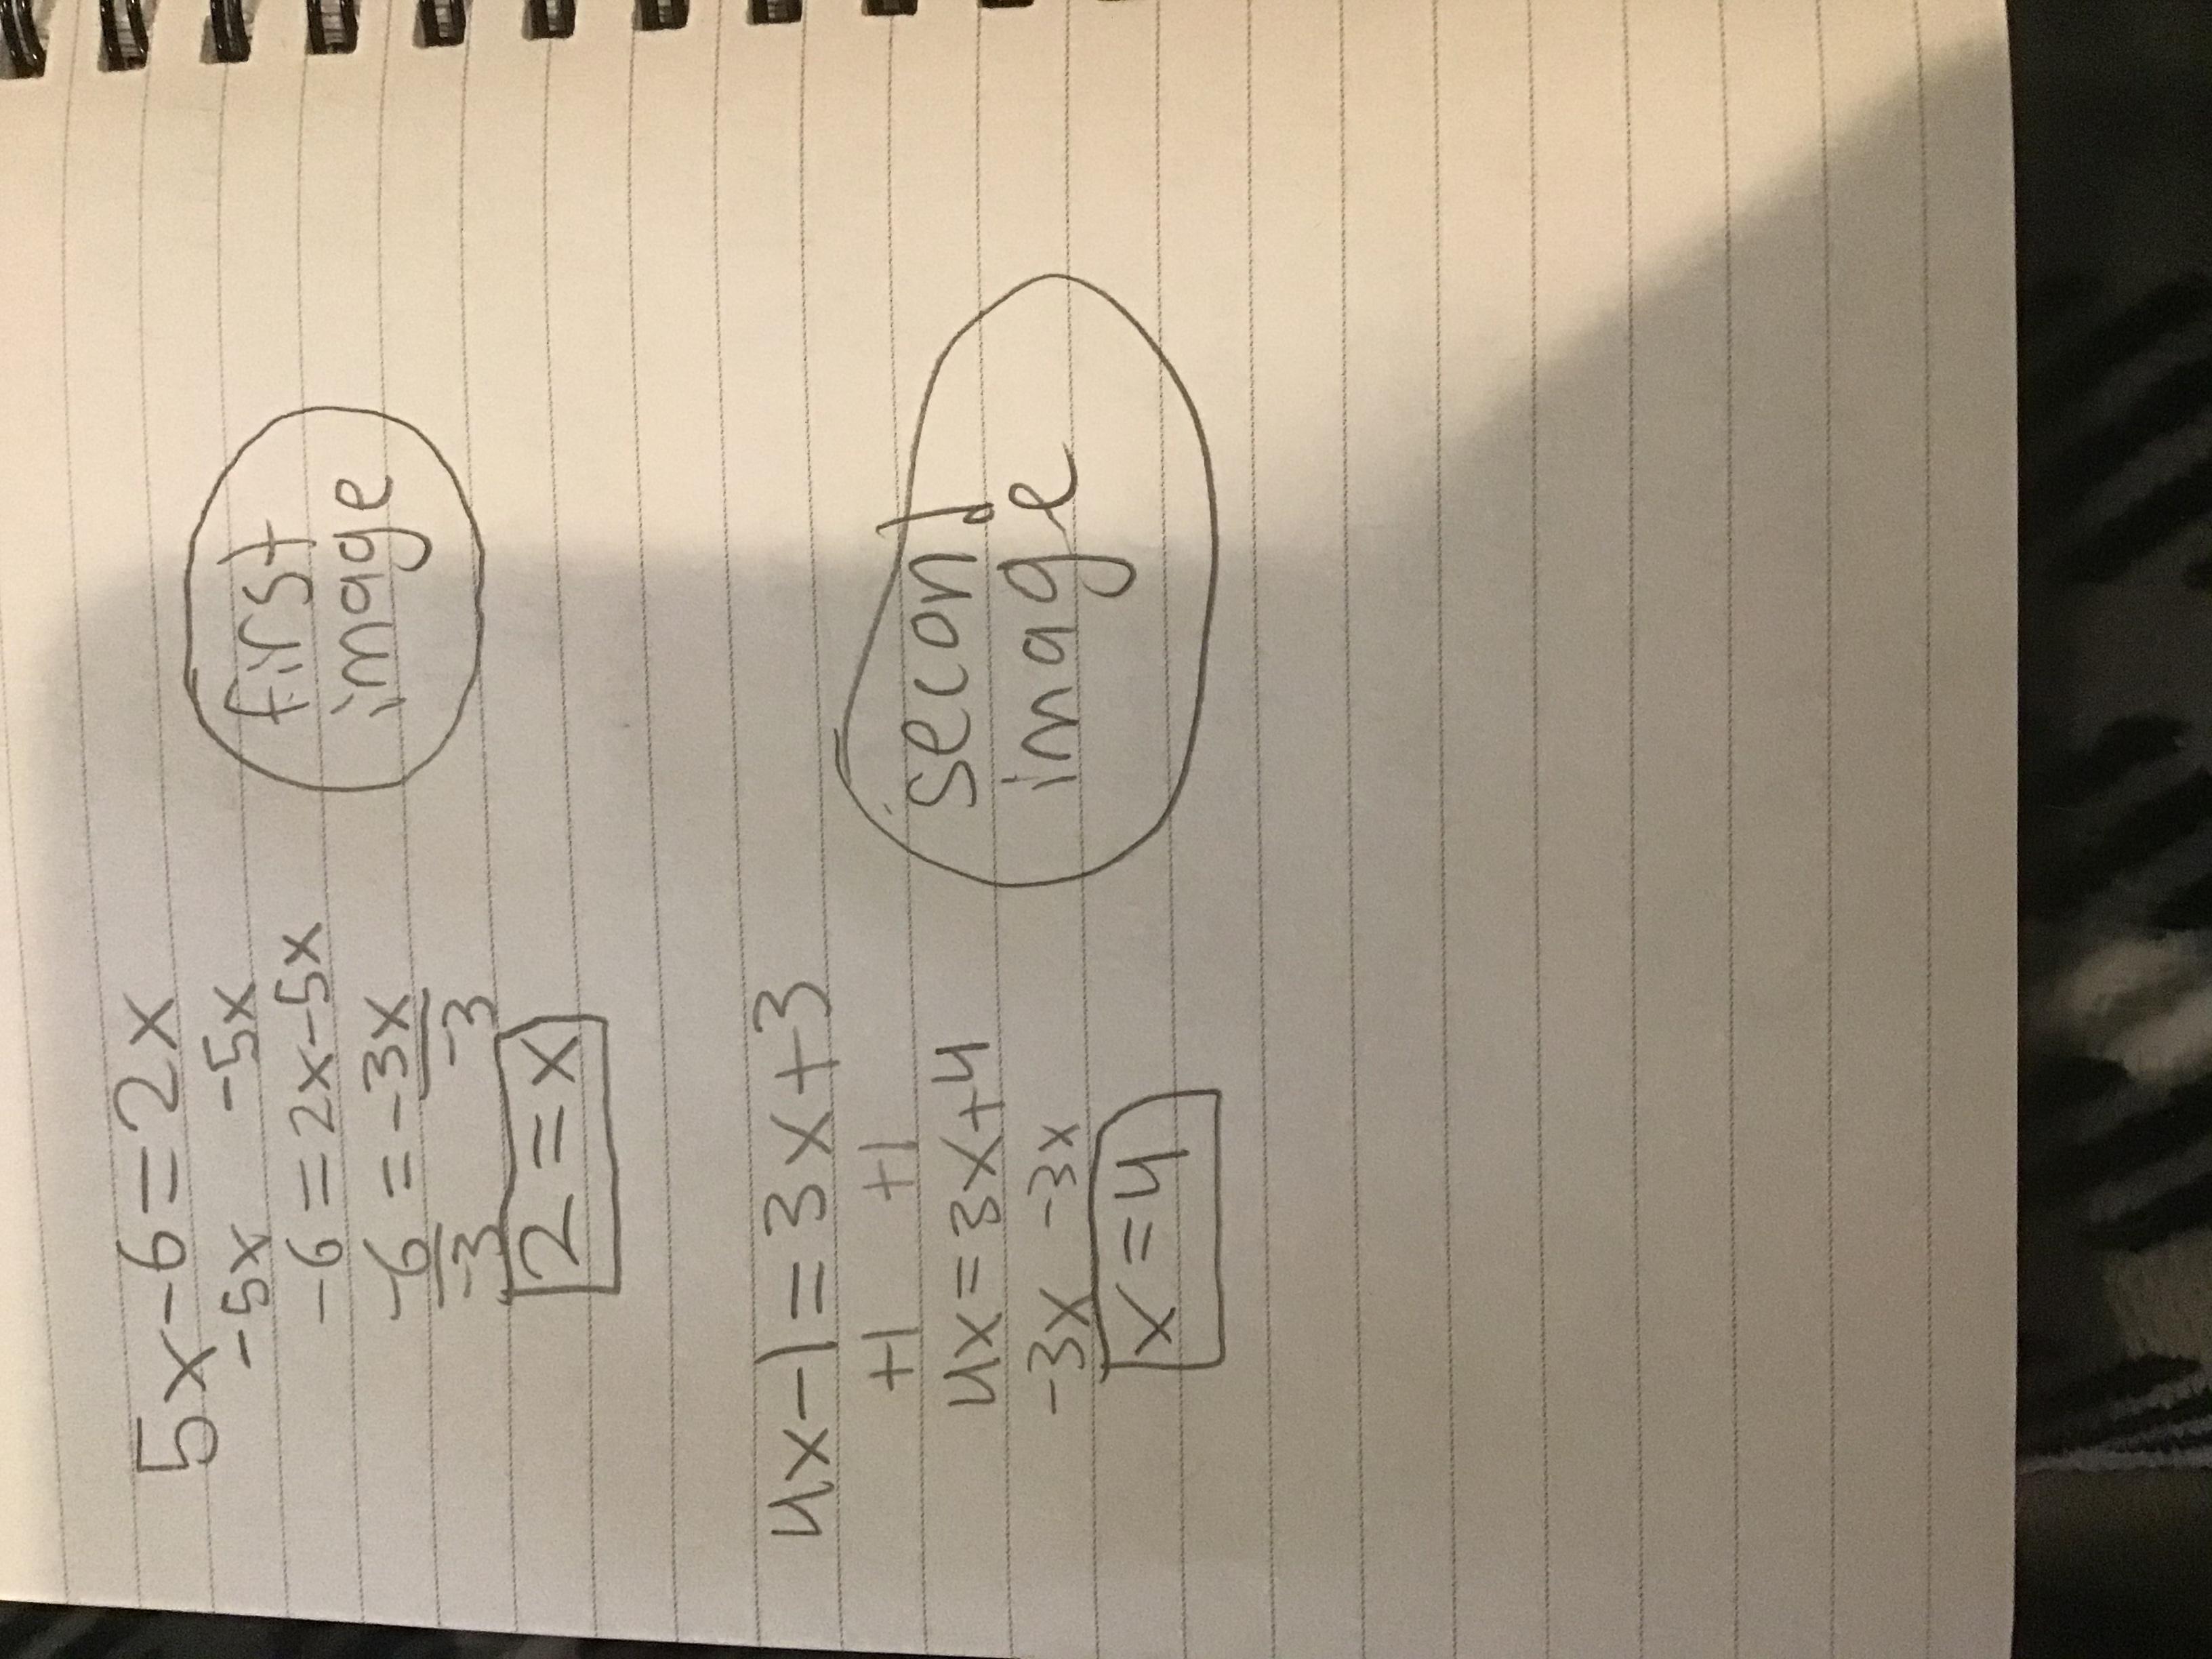 5x-6=2x
-5x -5x
-6=2x-5x
-6=-3x
-3 -3
2=x
first
image
4x-1=3x+3
+1 +1
4x=3x+4
-3x -3x
x=4
second
image